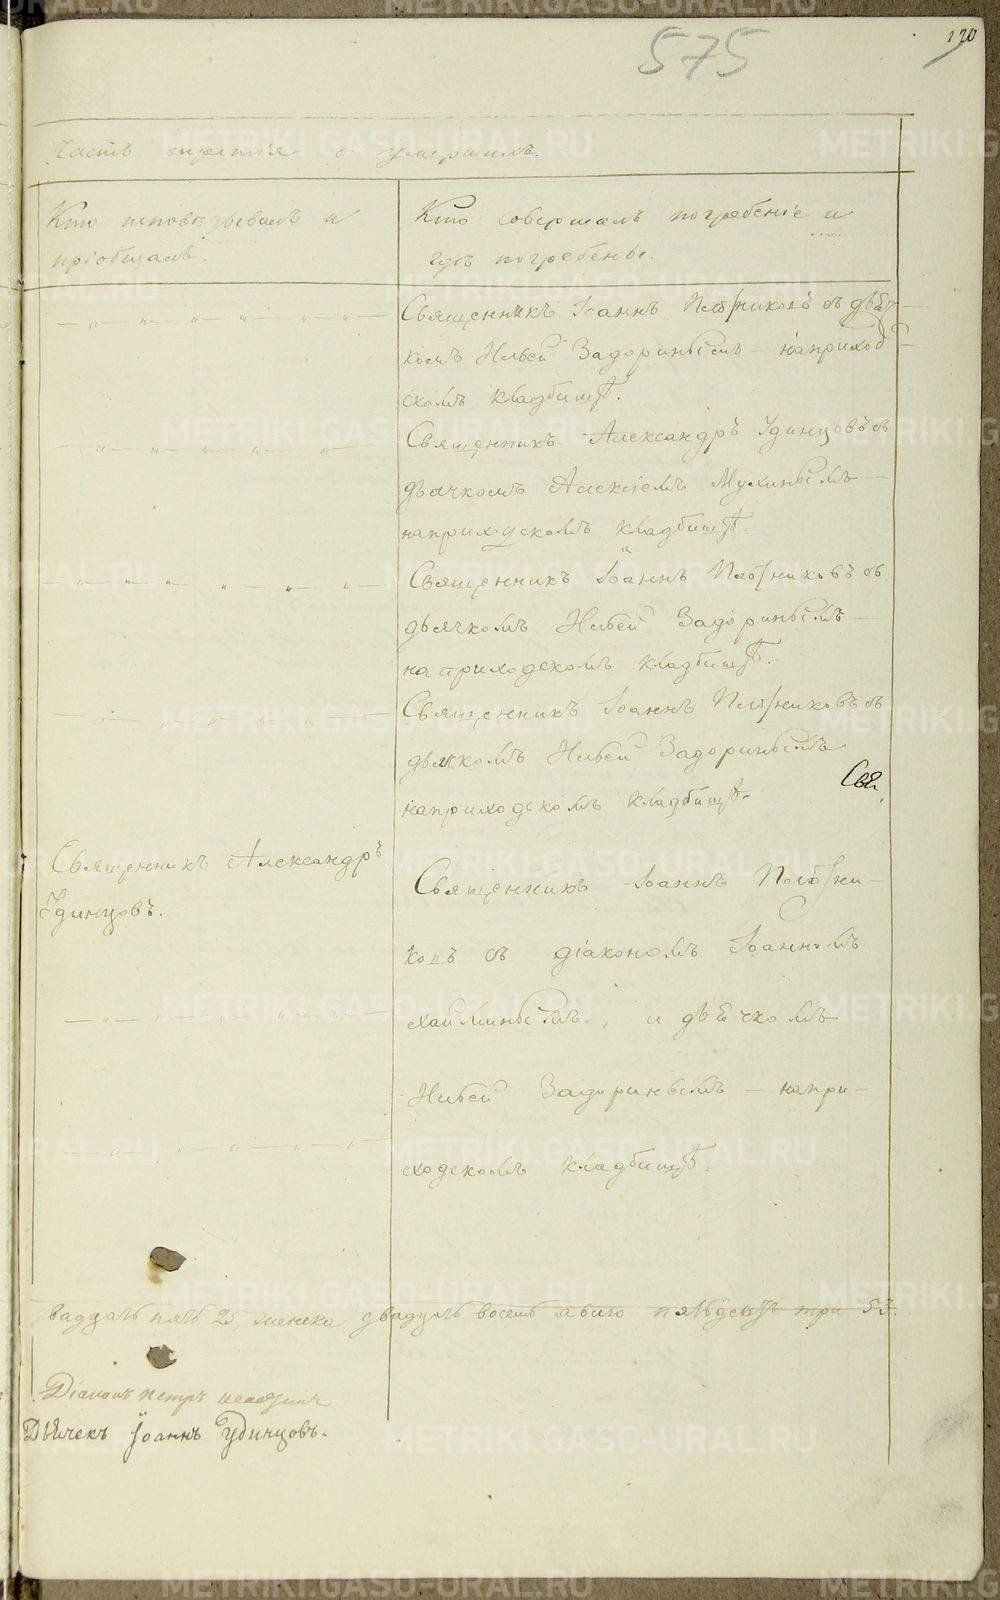 575
190
Часть третія о умершихъ.
Кто исповѣдывалъ и
пріобщалъ.
Кто совершалъ погребеніе и
гдѣ погребены.
Священникъ Іоаннъ Плотниковъ съ дьяч-
комъ Задоринымъ — на приход
скомъ кладбищѣ.
Священникъ Александръ Удинцовъ съ
дьячкомъ Алексіемъ Мухинымъ —
на приходскомъ кладбищѣ.
Священникъ Іоаннъ Плотниковъ съ
дьячкомъ Задоринымъ —
на приходскомъ кладбищѣ.
Священникъ Іоаннъ Плотниковъ съ
дьячкомъ Задоринымъ
на приходскомъ кладбищѣ.
Свя.
Священникъ Александръ
Удинцовъ.
Священникъ Іоаннъ Плотни-
ковъ съ діакономъ Іоанномъ
и дьячкомъ
Задоринымъ — на при-
ходскомъ кладбищѣ.
двадцать пять 25, женска двадцать восемь обоего пятьдесятъ три 53.
Діаконъ Петръ
Дьячекъ Іоаннъ Удинцовъ.
METRIKI.GASO-URAL.RU